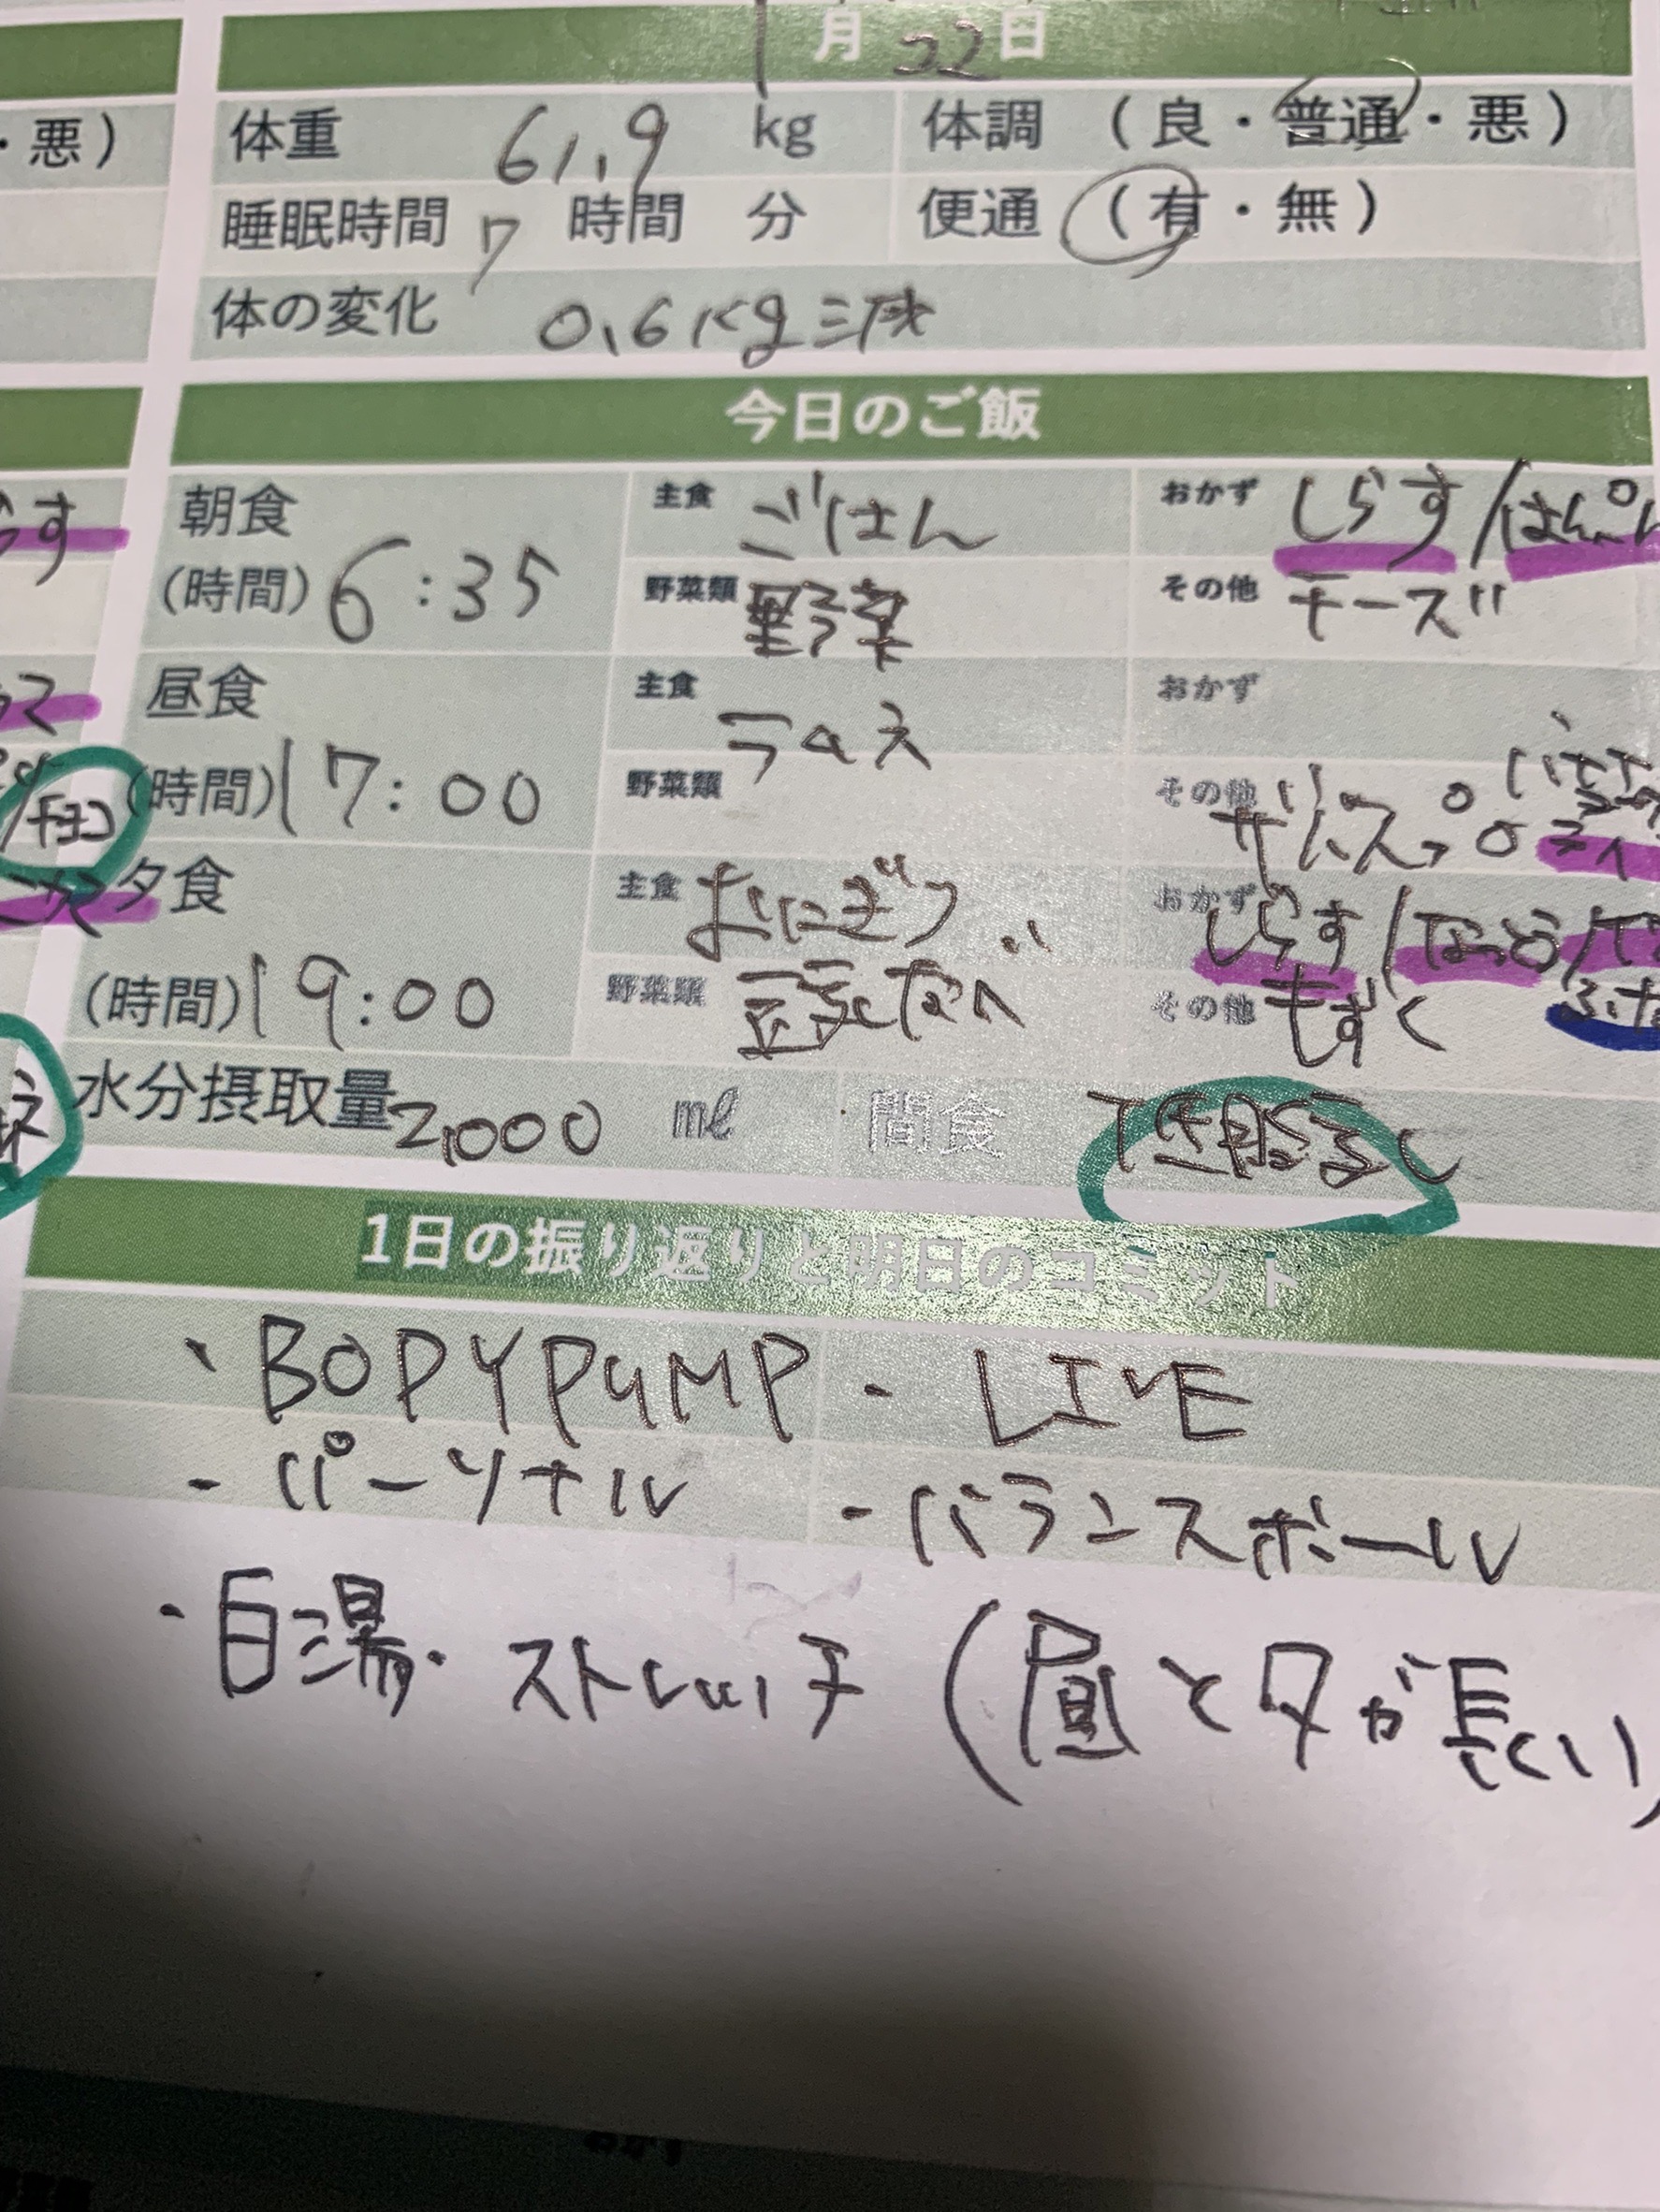 1月22日
・悪)
体重 61.9 kg 体調 (良・普通・悪)
睡眠時間 7 時間 分 便通 (有・無)
体の変化 0.6kg減
今日のご飯
朝食 主食 ごはん おかず しらす/はんぺん
(時間) 6:35 野菜類 野菜 その他 チーズ
昼食 主食 おかず
(時間) 17:00 野菜類 その他 ザバス
/チョコ
夕食 主食 おにぎり おかず しらす/なっとう/
(時間) 19:00 野菜類 豆乳なべ その他 もずく
水分摂取量 2,000 ml 間食
1日の振り返りと明日のコミット
・BODYPUMP ・LIVE
・パーソナル ・バランスボール
・白湯・ストレッチ (昼と夕が長い)